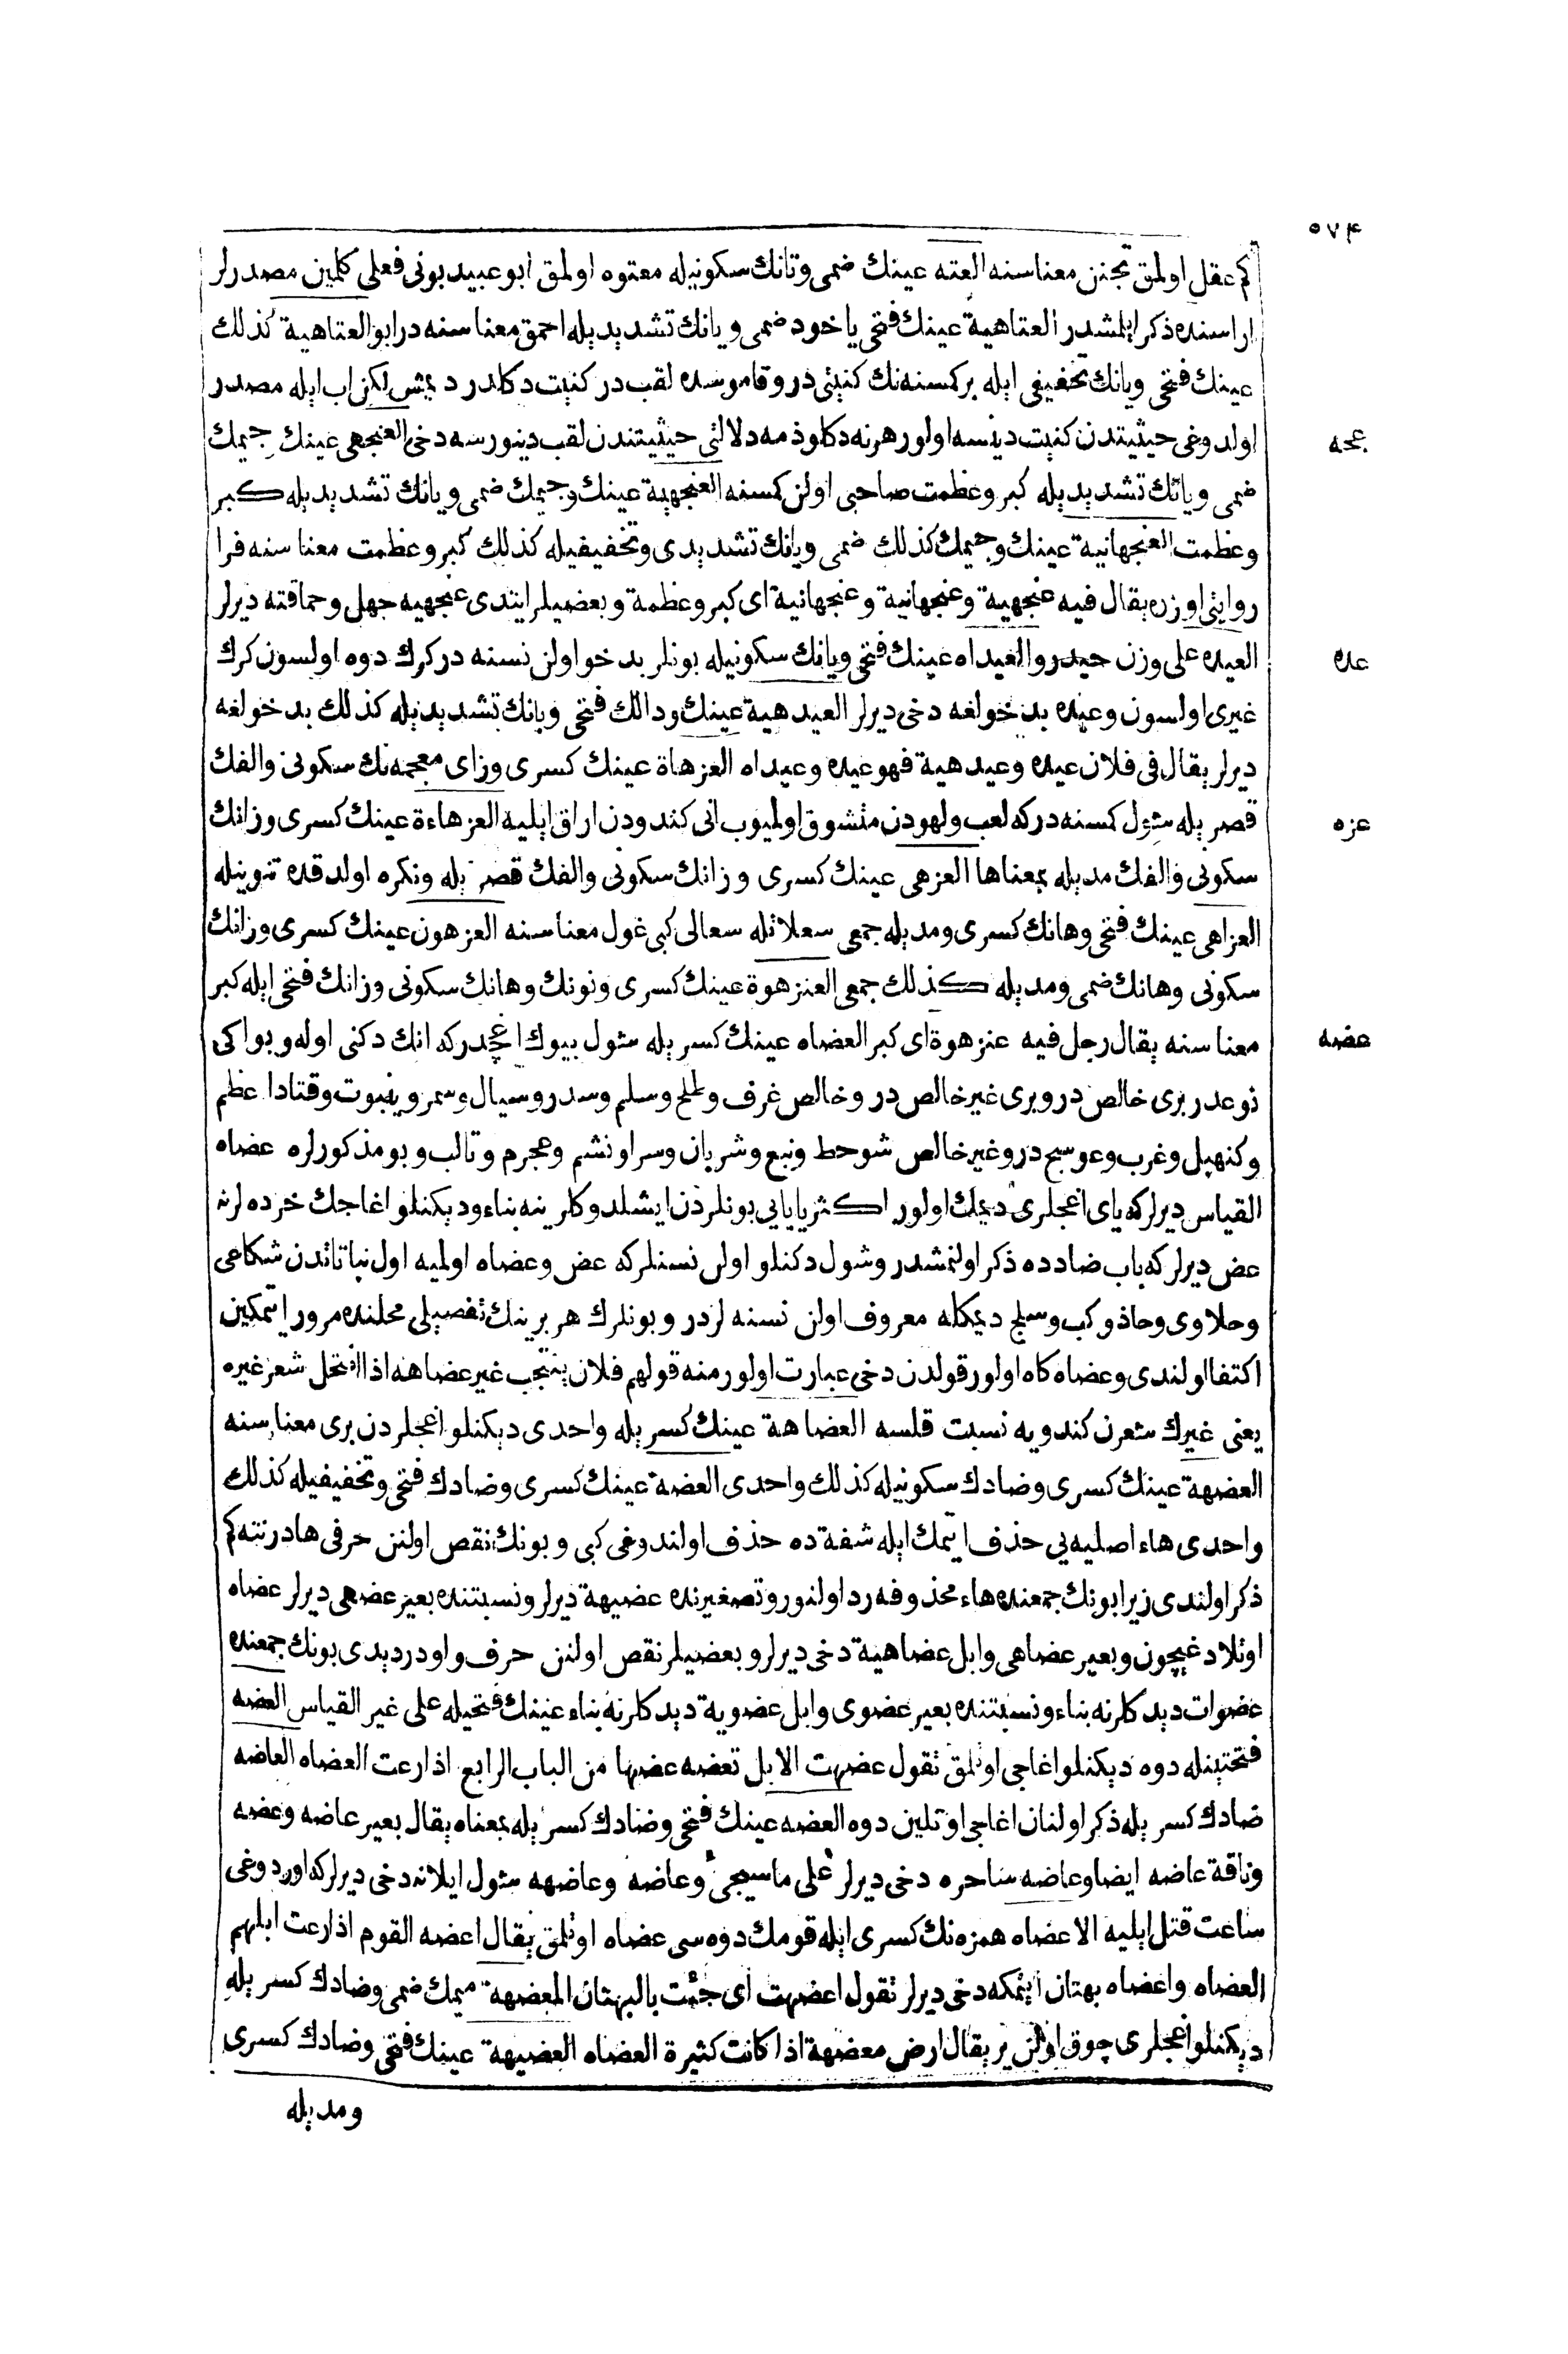 ٥٧٤
كم عقل اولمق تجنن معناسنه العته عينك ضمى وتانك سكونيله معتوه اولمق ابو عبيد بونى فعلى كلمين مصدرلر
اراسنده ذكر ايلمشدر العتاهية عينك فتحى ياخود ضمى ويانك تشديديله احمق معناسنه در ابو العتاهية كذلك
عينك فتحى ويانك تخفيفى ايله بر كمسنه نك كنيتى در وقاموسده لقب در كنيت دكلدر ديمش لكن اب ايله مصدر
اولدوغى حيثيتدن كنيت دينسه اولور هرنه دكلو ذمه دلالتى حيثيتندن لقب دينورسه دخى العنجهى عينك جيمك
عجه
ضمى ويانك تشديديله كبر وعظمت صاحبى اولن كمسنه العنجهية عينك وجيمك ضمى ويانك تشديديله كبر
وعظمت العنجهانية عينك وجيمك كذلك ضمى ويانك تشديدى وتخفيفيله كذلك كبر وعظمت معناسنه فرا
روايتى اوزره يقال فيه عنجهية وعنجهانية وعنجهانية اى كبر وعظمة وبعضيلر ايتدى عنجهيه جهل وحماقته ديرلر
العيده على وزن حيدر والعيداه عينك فتحى ويانك سكونيله بونلر بد خو اولن نسنه در كرك دوه اولسون كرك
عده
غيرى اولسون وعيده بد خولغه دخى ديرلر العيدهية عينك ودالك فتحى ويانك تشديديله كذلك بد خولغه
ديرلر يقال فى فلان عيده وعيدهية فهو عيده وعيداه العزهاة عينك كسرى وزاى معجمه نك سكونى والفك
قصر يله شول كمسنه در كه لعب ولهودن متشوق اولميوب انى كندودن اراق ايليه العزهاءة عينك كسرى وزانك
عزه
سكونى والفك مديله بمعناها العزهى عينك كسرى وزانك سكونى والفك قصر يله ونكره اولدقده تنوينله
العزاهى عينك فتحى وهانك كسرى ومديله جمعى سعلاتله سعالى كبى غول معناسنه العزهون عينك كسرى وزانك
سكونى وهانك ضمى ومديله كذلك جمعى العنزهوة عينك كسرى ونونك وهانك سكونى وزانك فتحى ايله كبر
معناسنه يقال رجل فيه عنزهوة اى كبر العضاه عينك كسر يله شول بيوك اغجدر كه انك دكنى اوله وبو اكى
عضه
نوعدر برى خالص در وبرى غير خالص در وخالص غرف وطلح وسلم وسدر وسيال وسمر وينبوت وقتادا عظم
وكنهبل وغرب وعوسج در وغير خالص شوحط ونبع وشريان وسراونشم وعجرم وتالب وبو مذكورلره عضاه
القياس ديرلر كه ياى اغجلرى ديمك اولور اكثر يايايي بونلردن ايشلدوكلرينه بناء وديكنلو اغاجك خرده لرنه
عض ديرلر كه باب ضادده ذكر اولنمشدر وشول دكنلو اولن نسنلر كه عض وعضاه اولميه اول نباتاتدن شكاعى
وحلاوى وحاذ وكب وسلج ديمكله معروف اولن نسنه لردر وبونلرك هر برينك تفصيلى محلنده مرور ايتمكين
اكتفا اولندى وعضاه كاه اولور قولدن دخى عبارت اولور منه قولهم فلان ينتجب غير عضاهه اذا انتحل شعر غيره
يعنى غيرك شعرن كندويه نسبت قلسه العضاهة عينك كسر يله واحدى ديكنلو اغجلردن برى معناسنه
العضهة عينك كسرى وضادك سكونيله كذلك واحدى العضه عينك كسرى وضادك فتحى وتخفيفيله كذلك
واحدى هاء اصليه يى حذف ايتمك ايله شفة ده حذف اولندوغى كبى وبونك نقص اولنن حرفى هادر نته كم
ذكر اولندى زيرا بونك جمعنده هاء محذوفه رد اولنور وتصغيرنده عضيهة ديرلر ونسبتنده بعير عضهى ديرلر عضاه
اوتلادغيچون وبعير عضاهى وابل عضاهية دخى ديرلر وبعضيلر نقص اولنن حرف واودر ديدى بونك جمعنده
عضوات ديدكلرنه بناء ونسبتنده بعير عضوى وابل عضوية ديدكلرنه بناء عينك فتحيله على غير القياس العضه
فتحتينله دوه ديكنلو اغاجى اوتلمق تقول عضهت الابل تعضه عضها من الباب الرابع اذا رعت العضاه العاضه
ضادك كسر يله ذكر اولنان اغاجى اوتلين دوه العضه عينك فتحى وضادك كسر يله بمعناه يقال بعير عاضه وعضه
وناقة عاضه ايضا وعاضه ساحره دخى ديرلر على ما سيجى وعاضه وعاضهه شول ايلانه دخى ديرلر كه اوردوغى
ساعت قتل ايليه الاعضاه همزه نك كسرى ايله قومك دوه سى عضاه اوتلمق يقال اعضه القوم اذا رعت ابلهم
العضاه واعضاه بهتان ايتمكه دخى ديرلر تقول اعضهت اى جئت بالبهتان المعضهة ميمك ضمى وضادك كسر يله
ديكنلو اغجلرى چوق اولن ير يقال ارض معضهة اذا كانت كثيرة العضاه العضيهة عينك فتحى وضادك كسرى
ومديله